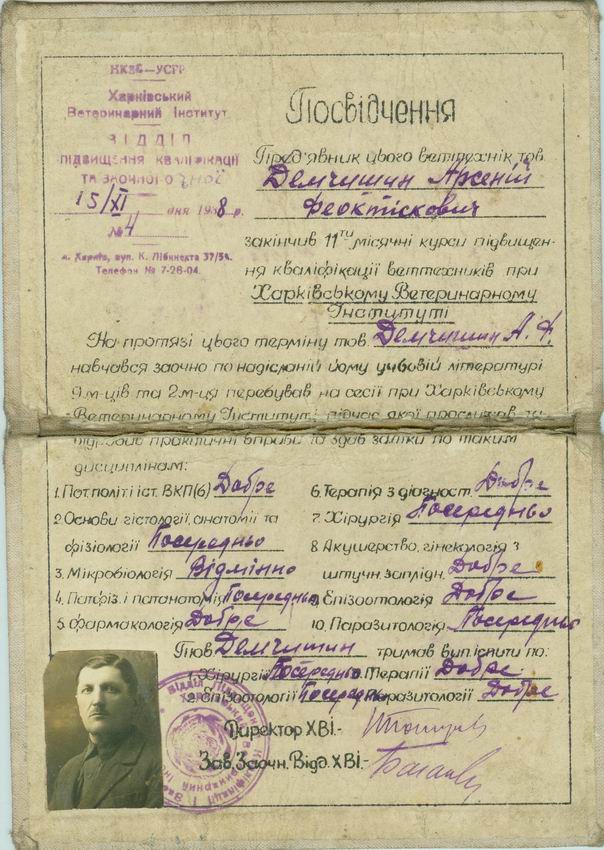 НКЗС—УСРР
Харківський
Ветеринарний Інститут
ВІДДІЛ
ПІДВИЩЕННЯ КВАЛІФІКАЦІЇ
ТА ЗАОЧНОГО
15/XI дня 1938 р.
№ 4
м. Харків, вул. К. Лібкнехта 37/54.
Телефон № 7-26-04.
Посвідчення
Пред'явник цього веттехнік тов.
Демчишин Арсеній
Феоктіскович
закінчив 11ти місячні курси підвищен-
ня кваліфікації веттехників при
Харківському Ветеринарному
Інституті
На протязі цього терміну тов. Демчишин А. Ф.
навчався заочно по надісланій йому учбовій літературі
9 м-ців та 2 м-ця перебував на сесії при Харківському
Ветеринарному Інституті, підчас якої прослухав та
підробив практичні вправи та здав заліки по таким
дисциплінам:
1. Пот. політ і іст. ВКП(б) Добре
2. Основи гістології, анатомії та
фізіології Посередньо
3. Мікробіологія Відмінно
4. Пат. фіз. і патанатомія Посередньо
5. Фармакологія Добре
6. Терапія з діагност. Добре
7. Хірургія Посередньо
8. Акушерство, гінекологія з
штучн. заплідн. Добре
9. Епізоотологія Добре
10. Паразитологія Посередньо
Тов. Демчишин тримав випісити по:
1. Хірургії Посередньо 3. Терапії Добре
2. Епізоотології Посередньо 4. Паразитології Добре
Директор ХВІ.-
Зав. Заочн. Відд. ХВІ.-